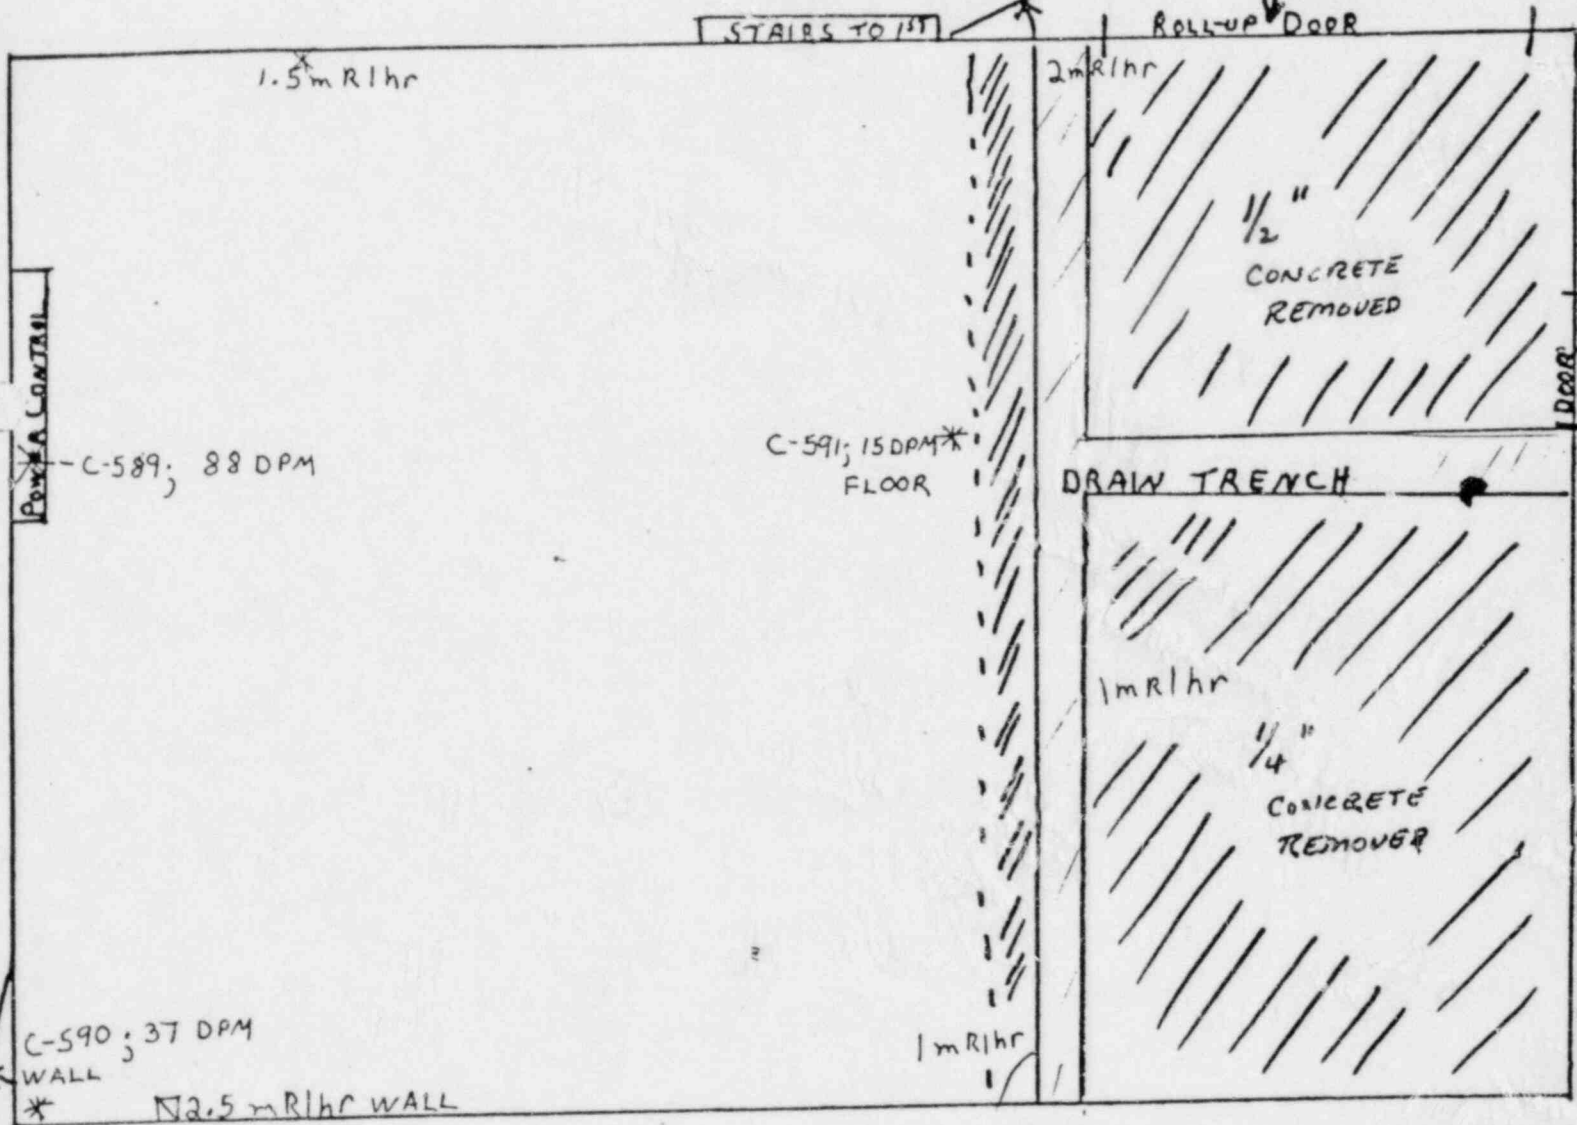 STAIRS TO 1ST
ROLL-UP DOOR
1.5 mR/hr
2mR/hr
1/2"
CONCRETE
REMOVED
DOOR
POWER CONTROL
C-589; 88 DPM
C-591; 15 DPM
FLOOR
DRAIN TRENCH
1mR/hr
1/4"
CONCRETE
REMOVER
C-590; 37 DPM
WALL
2.5 mR/hr WALL
1mR/hr